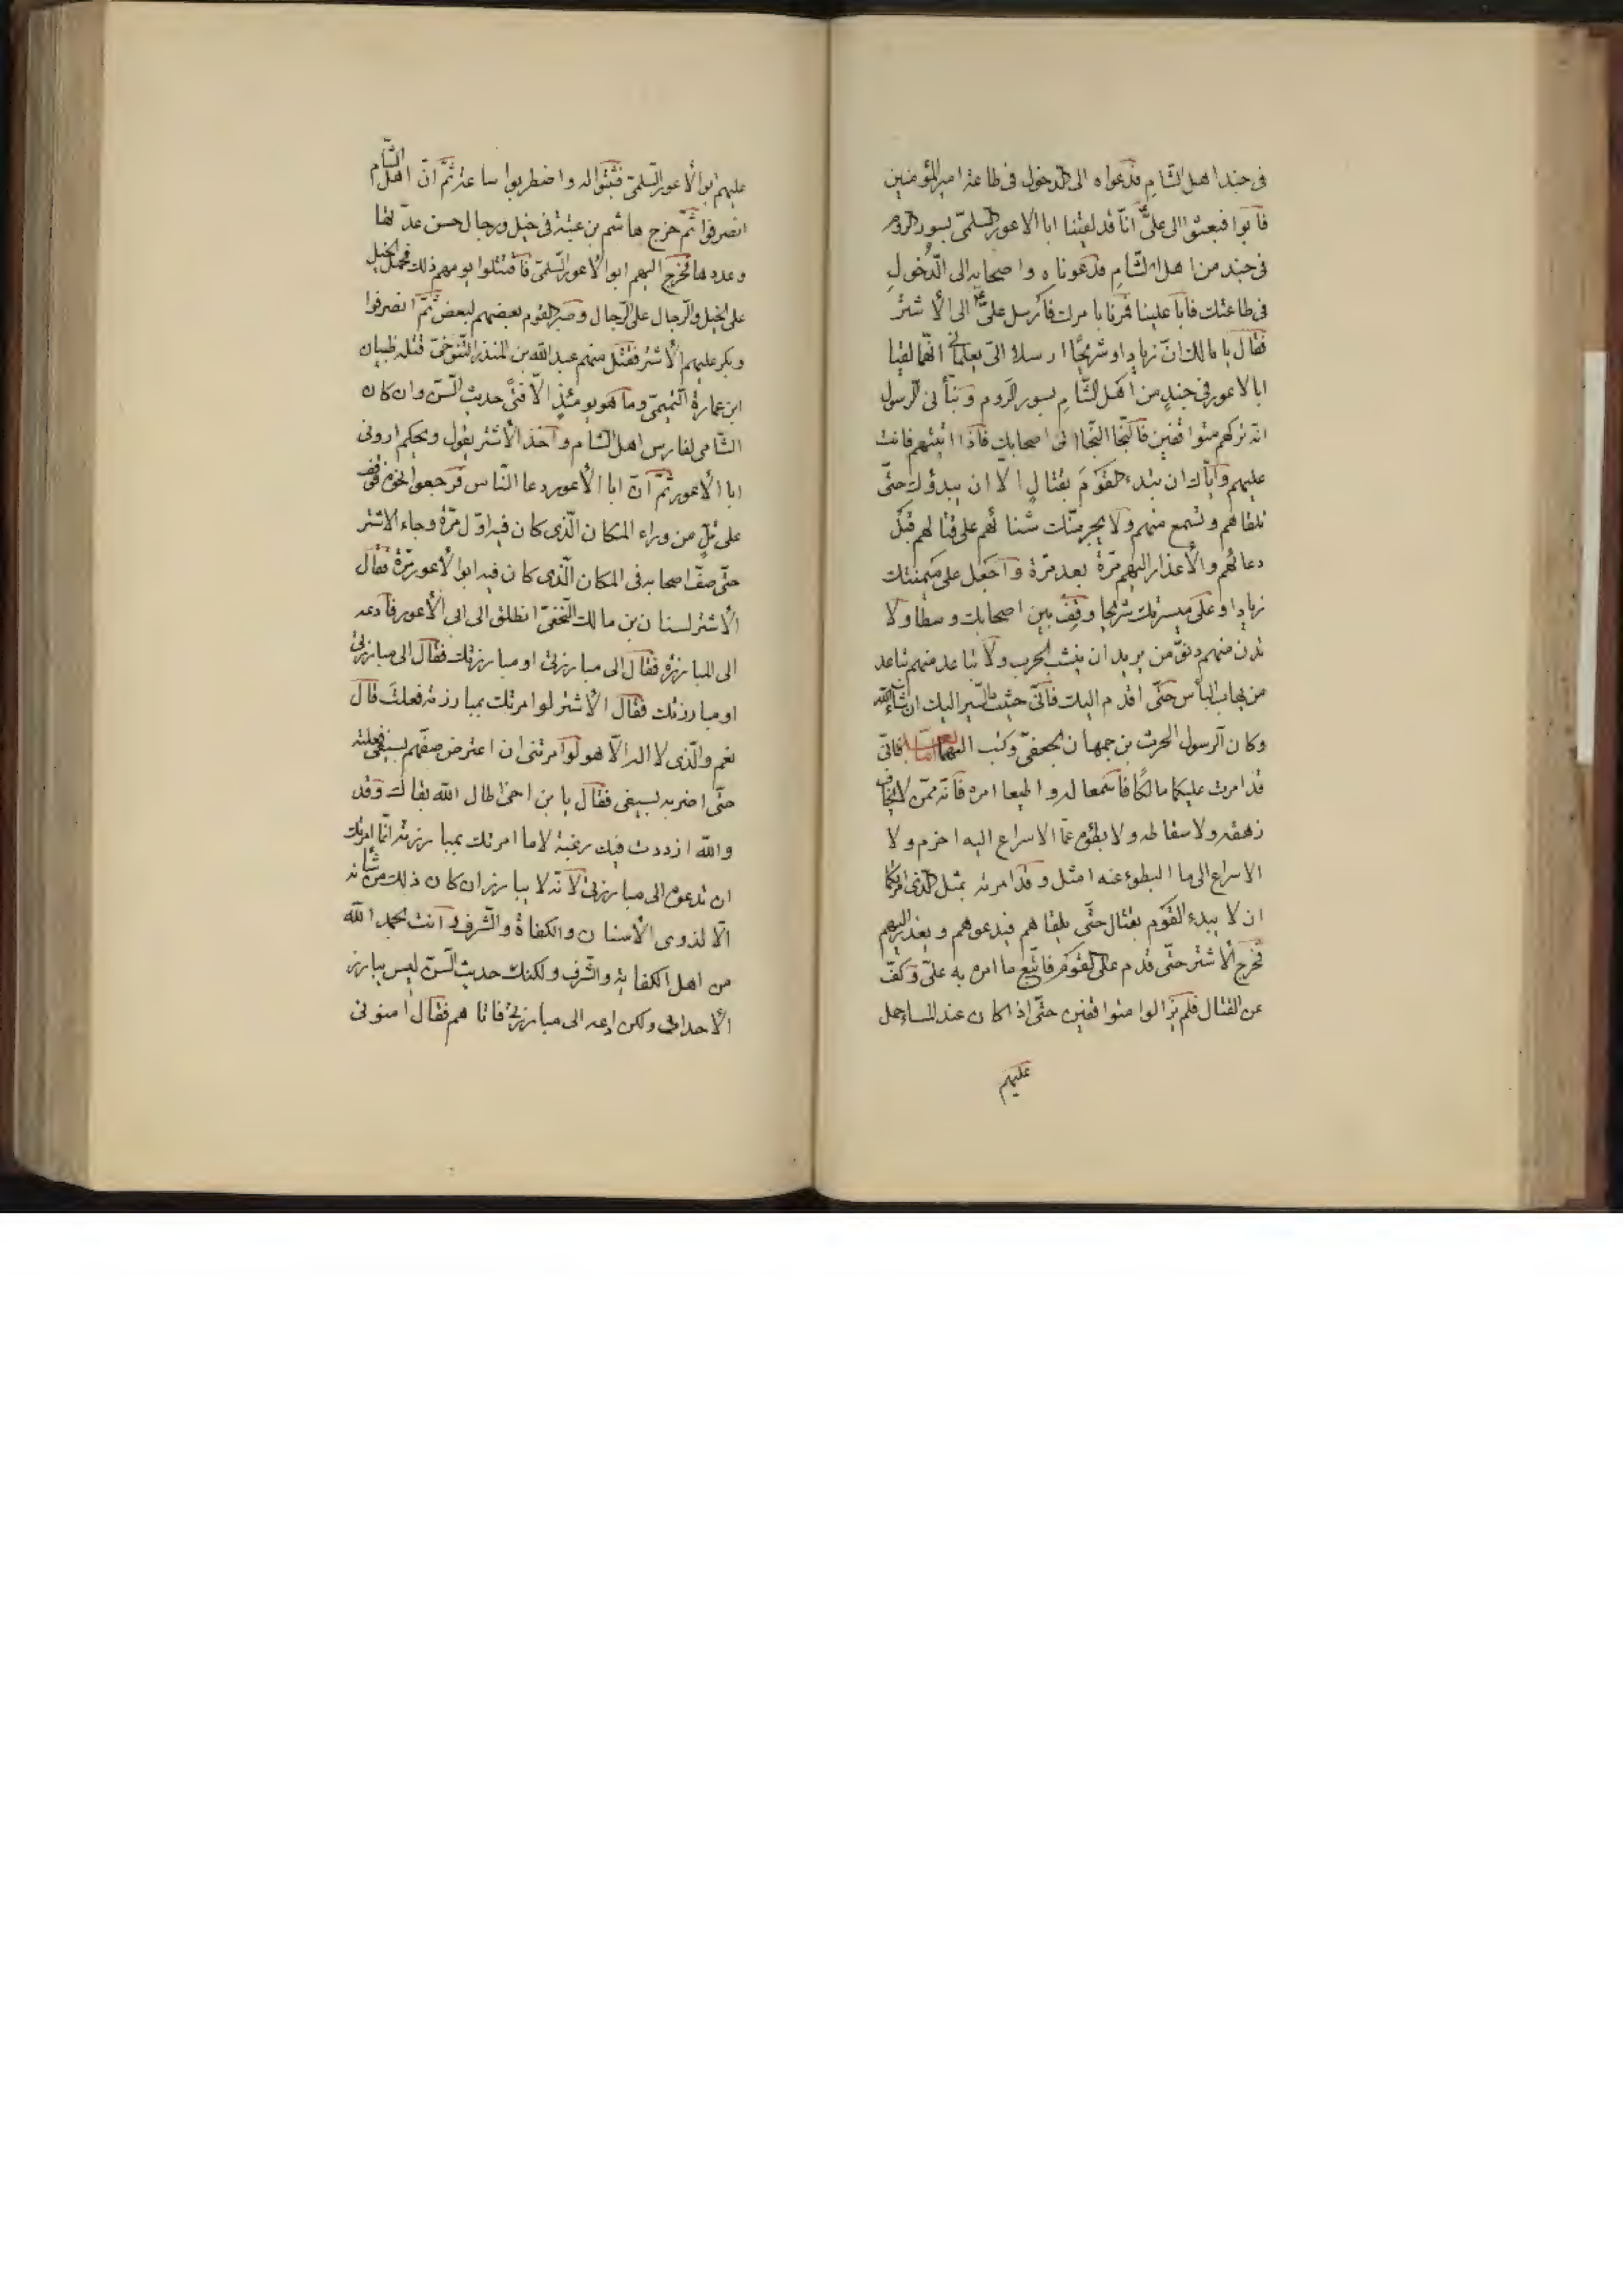 فى جند اهل الشام فدعواه الى الدخول فى طاعة امير المؤمنين
فابوا فبعثوا الى علىّ انّا قد لقينا ابا الاعور السلمىّ بسور الروم
فى جند من اهل الشام فدعوناه واصحابه الى الدّخول
فى طاعتك فابا علينا فمرنا بامرك فارسل علىّ الى الأشتر
فقال يا مالك انّ زيادا وشريحًا ارسلا الىّ يعلمانى انّهما لقيا
ابا الاعور فى جند من اهل الشّام بسور الروم ونبأنى الرسول
انه تركهم متواقفين فالنجا النجا الى اصحابك فاذا اتيتهم فانت
عليهم وايّاك ان تبدء القوم بقتال الا ان يبدؤك حتّى
تلقاهم وتسمع منهم ولا يجرمنّك شنأنهم على قتالهم قبل
دعائهم والأعذار اليهم مرّة بعد مرّة واجعل على ميمنتك
زيادا وعلى ميسرتك شريحا وقف بين اصحابك وسطا ولا
تدن منهم دنوّ من يريد ان ينشب الحرب ولا تباعد منهم تباعد
من يهاب البأس حتّى اقدم اليك فانّى حثيث السّير اليك ان شاء الله
وكان الرسول الحرث بن جمهان الجعفىّ وكتب اليهما امّا بعد فانّى
قد امرت عليكما مالكا فاسمعا له واطيعا امره فانّه ممّن لا يخاف
زهقه ولا سقاطه ولا بطؤه عمّا الاسراع اليه احزم ولا
الاسراع الى ما البطوء عنه امثل وقد امرته بمثل الّذى امرتكما
ان لا يبدء القوم بقتال حتّى يلقاهم فيدعوهم ويعذر اليهم
فخرج الأشتر حتّى قدم على القوم فاتّبع ما امره به علىّ وكفّ
عن القتال فلم يزالوا متواقفين حتّى اذا كان عند المساء حمل
عليهم
عليهم ابو الأعور السّلمىّ فثبتوا له واضطربوا ساعة ثمّ انّ اهل الشّام
انصرفوا ثمّ خرج هاشم بن عتبة فى خيل ورجال حسن عدّتها
وعددها فخرج اليهم ابو الأعور السّلمىّ فاقتتلوا يومهم ذلك تحمل الخيل
على الخيل والرّجال على الرّجال وصبر القوم بعضهم لبعض ثمّ انصرفوا
وبكر عليهم الأشتر فقتل منهم عبد الله بن المنذر التّنوخىّ قتله ظبيان
ابن عمارة التّميمىّ وما هو يومئذٍ الّا فتىً حديث السّنّ وان كان
الشّامى لفارس اهل الشام واخذ الأشتر يقول ويحكم ارونى
ابا الأعور ثمّ انّ ابا الأعور دعا النّاس فرجعوا نحوه فوقف
على تلّ من وراء المكان الّذى كان فيه اوّل مرّة وجاء الاشتر
حتّى صفّ اصحابه فى المكان الّذى كان فيه ابو الأعور مرّة فقال
الأشتر لسنان بن مالك النّخعىّ انطلق الى ابى الأعور فادعه
الى المبارزة فقال الى مبارزتى او مبارزتك فقال الى مبارزتى
او مبارزتك فقال الأشتر لو امرتك بمبارزته فعلت قال
نعم والّذى لا اله الّا هو لو امرتنى ان اعترض صفّهم بسيفى فعلته
حتّى اضربه بسيفى فقال يا بن اخى اطال الله بقاك وقد
والله ازددت فيك رغبة لا ما امرتك بمبارزته انّما امرتك
ان تدعوه الى مبارزتى لانّه لا يبارز ان كان ذلك من شأنه
الّا لذوى الأسنان والكفاة والشّرف وانت بحمد الله
من اهل الكفاية والشّرف ولكنك حديث السّنّ ليس يبارز
الأحداث ولكن ادعه الى مبارزتى فاتاهم فقال امنونى